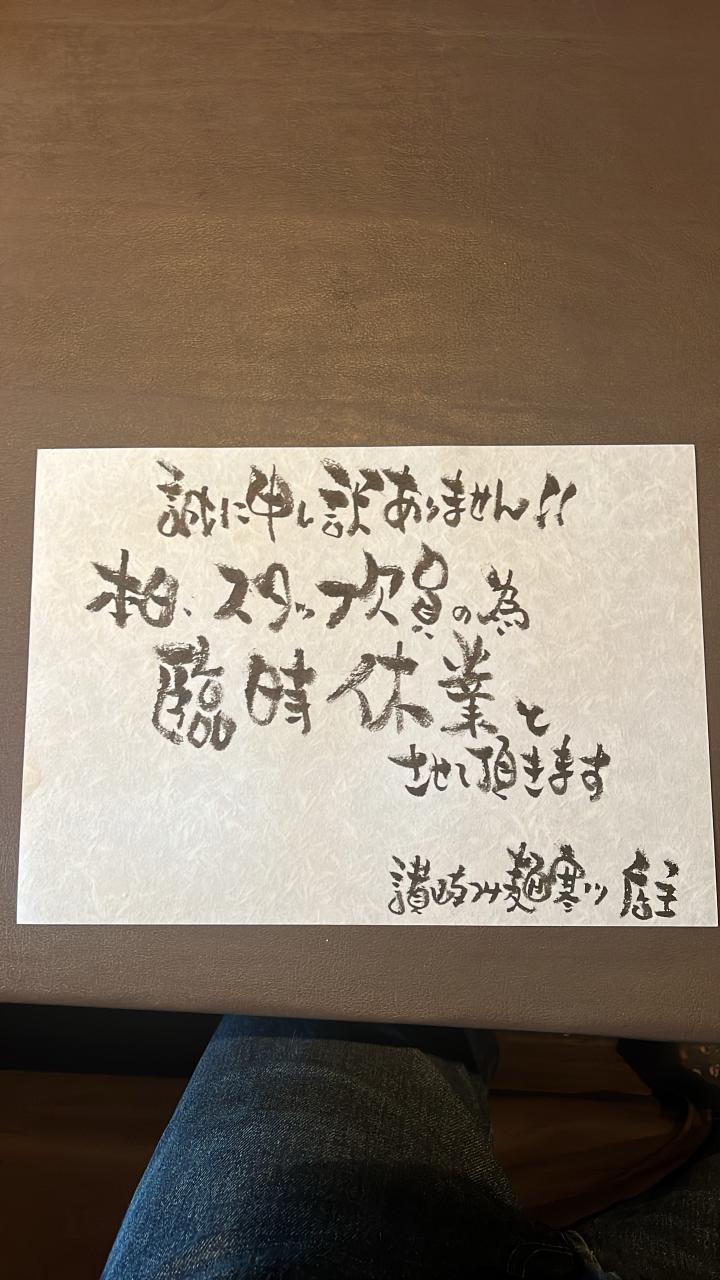 誠に申し訳ありません!!
本日、スタッフ欠員の為
臨時休業と
させて頂きます
讃岐つけ麺寒川 店主